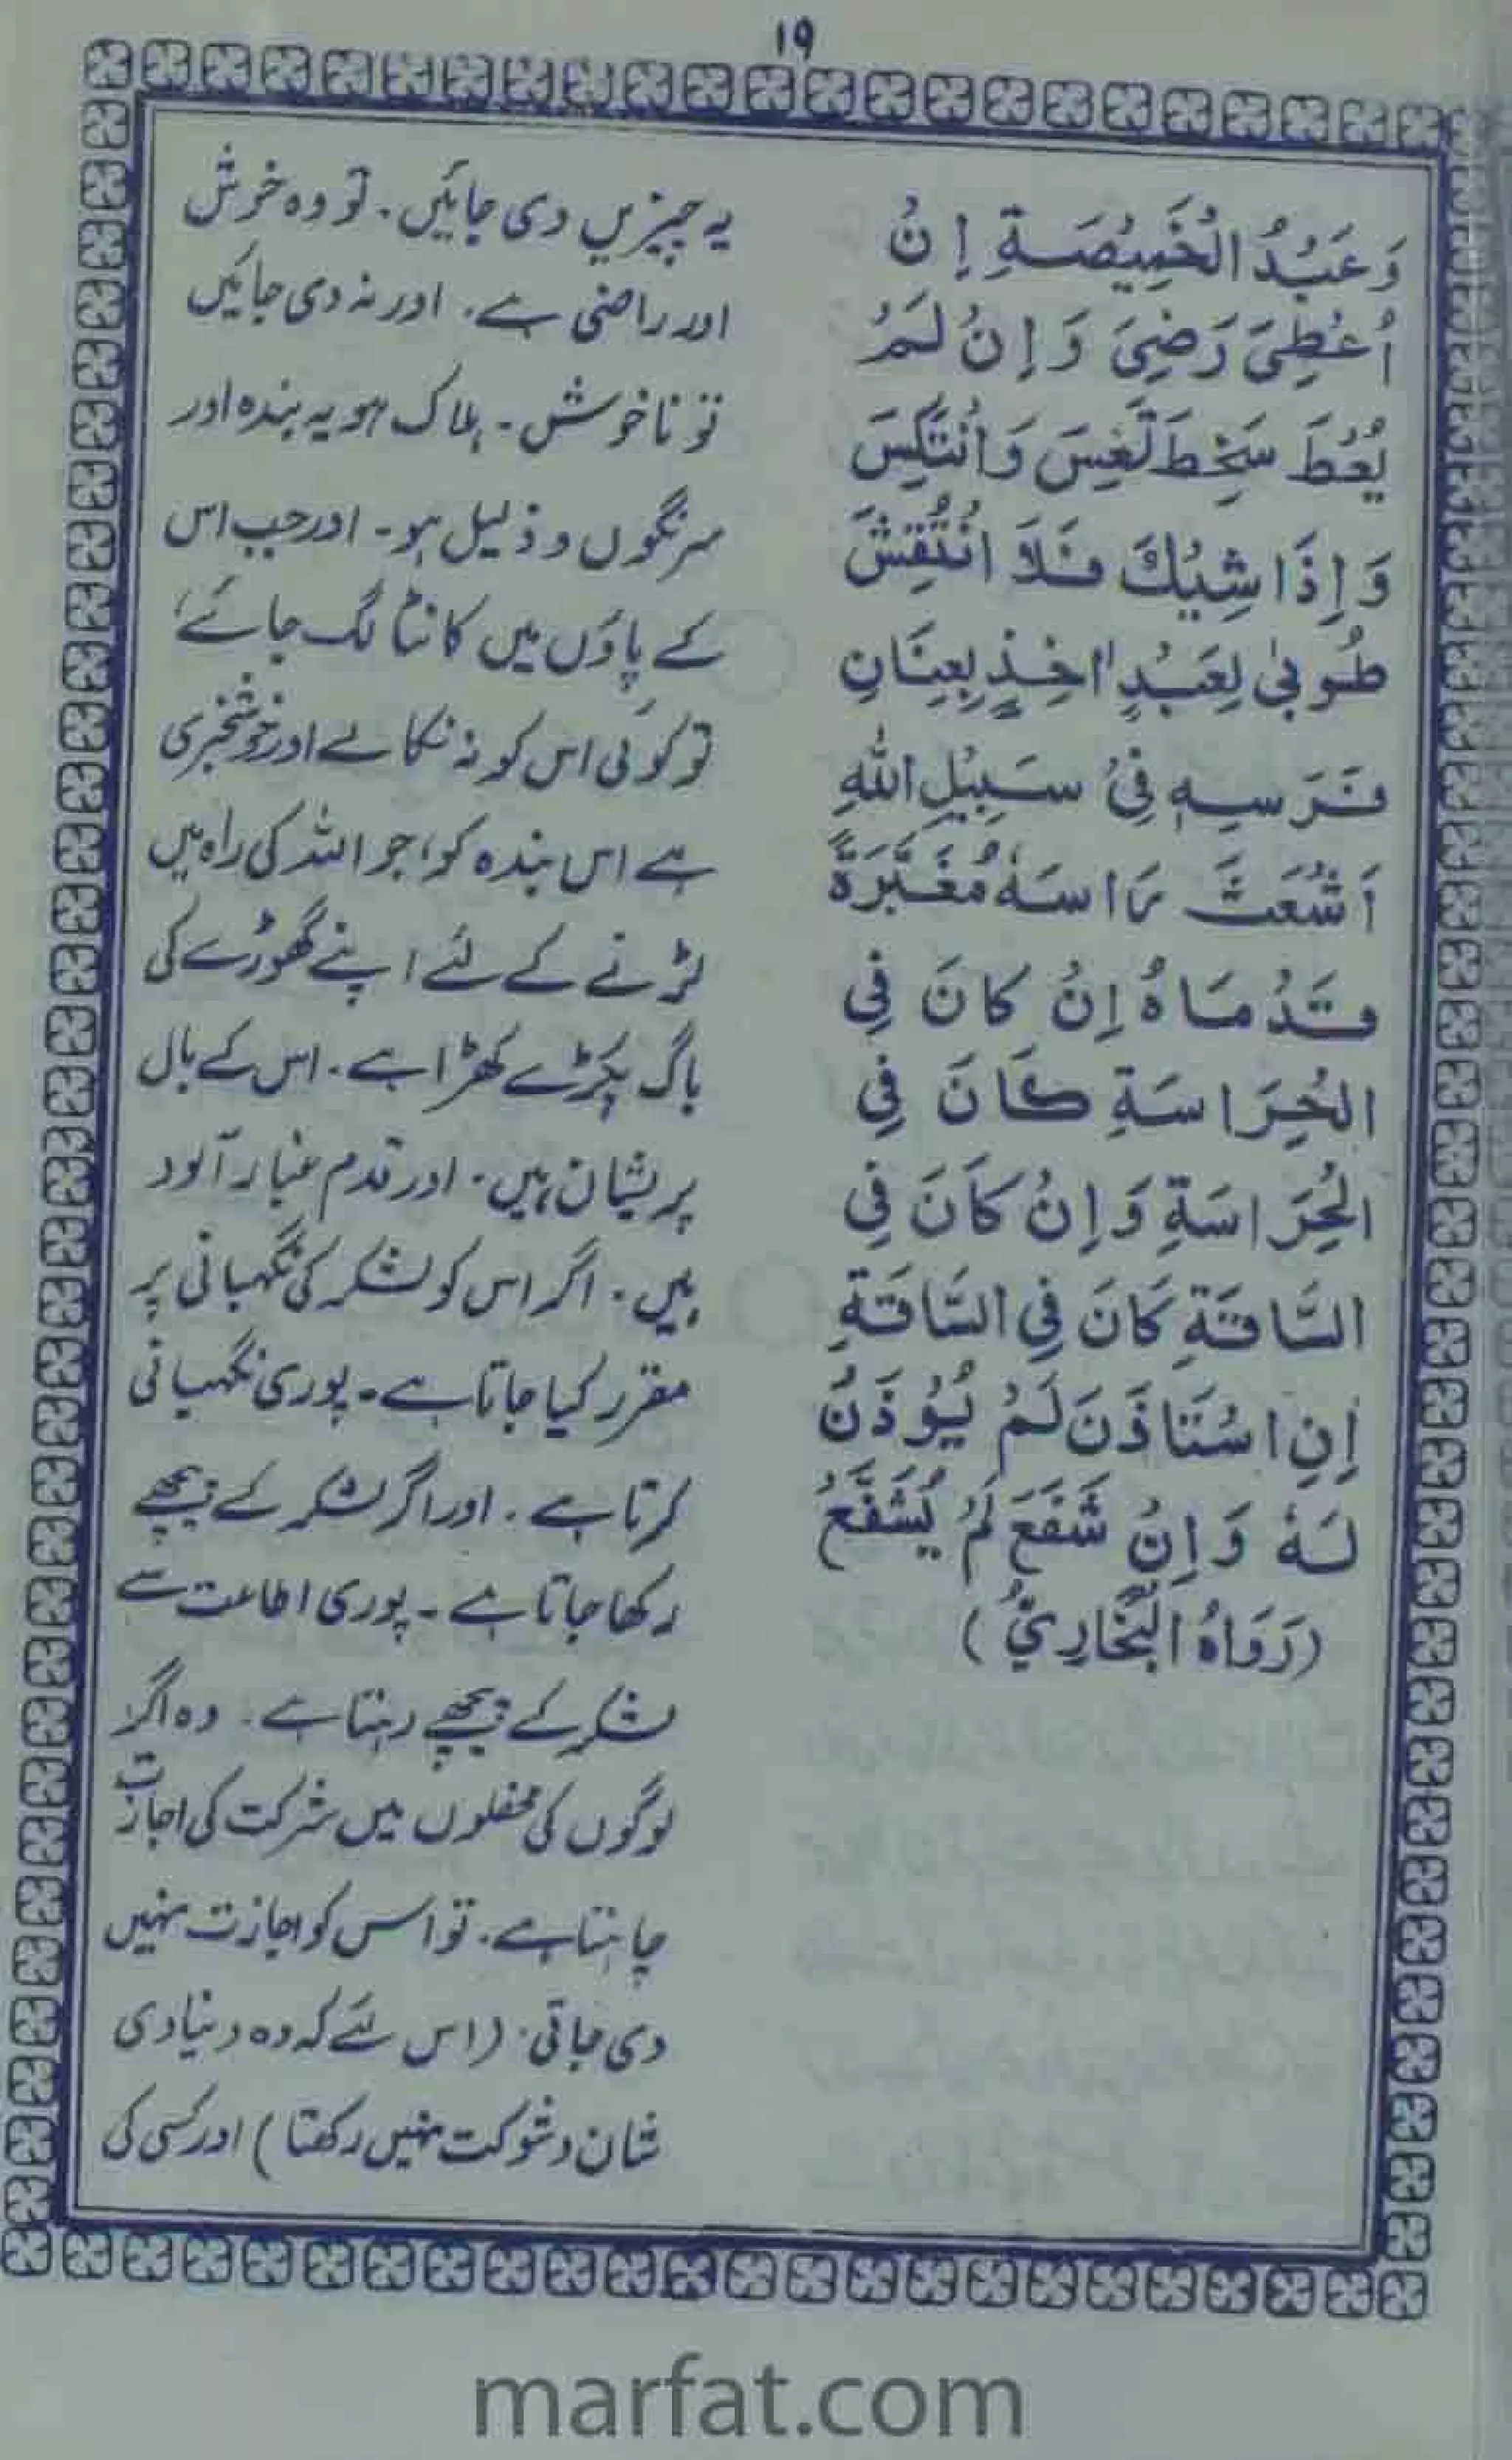 ۱۹
وَعَبْدُ الْخَمِيْصَةِ اِنْ
اُعْطِيَ رَضِيَ وَاِنْ لَمْ
يُعْطَ سَخِطَ تَعِسَ وَانْتَكَسَ
وَاِذَا شِيْكَ فَلَا انْتُقِشَ
طُوبٰى لِعَبْدٍ اٰخِذٍ بِعِنَانِ
فَرَسِهٖ فِيْ سَبِيْلِ اللّٰهِ
اَشْعَثَ رَاسَهٗ مُغَبَّرَةً
قَدْمَاهُ اِنْ كَانَ فِي
الْحِرَاسَةِ كَانَ فِي
الْحِرَاسَةِ وَاِنْ كَانَ فِي
السَّاقَةِ كَانَ فِي السَّاقَةِ
اِنِ اسْتَاذَنَ لَمْ يُؤْذَنْ
لَهٗ وَاِنْ شَفَعَ لَمْ يُشَفَّعْ
(رَوَاهُ الْبُخَارِيُّ)
یہ چیزیں دی جائیں۔ تو وہ خوش
اور راضی ہے۔ اور نہ دی جائیں
تو ناخوش۔ ہلاک ہو یہ بندہ اور
سرنگوں و ذلیل ہو۔ اور جب اس
کے پاؤں میں کانٹا لگ جائے
تو کوئی اس کو نہ نکالے اور خوشخبری
ہے اس بندہ کو، جو اللہ کی راہ میں
لڑنے کے لئے اپنے گھوڑے کی
باگ پکڑے کھڑا ہے۔ اس کے بال
پریشان ہیں۔ اور قدم غبار آلود
ہیں۔ اگر اس کو لشکر کی نگہبانی پر
مقرر کیا جاتا ہے۔ پوری نگہبانی
کرتا ہے۔ اور اگر لشکر کے پیچھے
رکھا جاتا ہے۔ پوری اطاعت سے
لشکر کے پیچھے رہتا ہے۔ وہ اگر
لوگوں کی محفلوں میں شرکت کی اجازت
چاہتا ہے۔ تو اس کو اجازت نہیں
دی جاتی۔ (اس لئے کہ وہ دنیاوی
شان و شوکت نہیں رکھتا) اور کسی کی
marfat.com